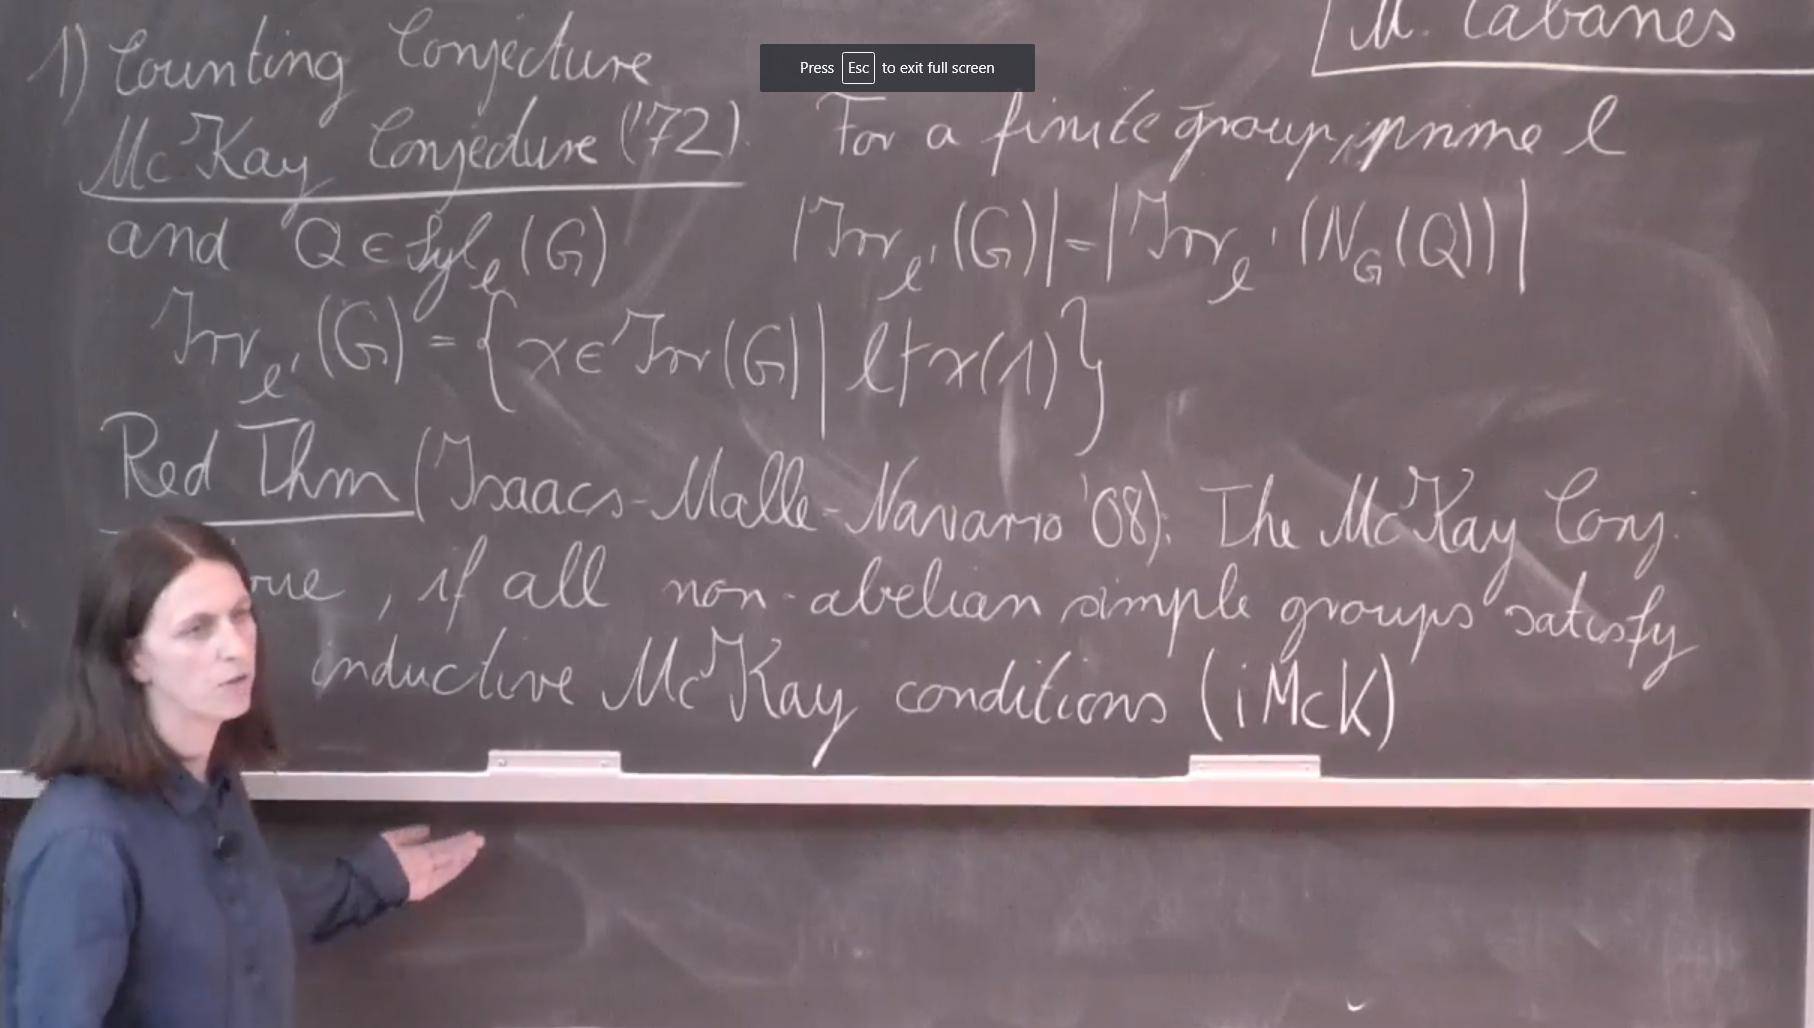 M. Cabanes
Press Esc to exit full screen
1) Counting Conjecture
McKay Conjecture ('72). For a finite group, prime l
and Q ∈ Syl_l (G) |Irr_l' (G)| = |Irr_l' (N_G (Q))|
Irr_l' (G) = { χ ∈ Irr (G) | l ∤ χ(1) }
Red Thm (Isaacs-Malle-Navarro '08). The McKay Conj.
, if all non-abelian simple groups satisfy
inductive McKay conditions (iMcK)